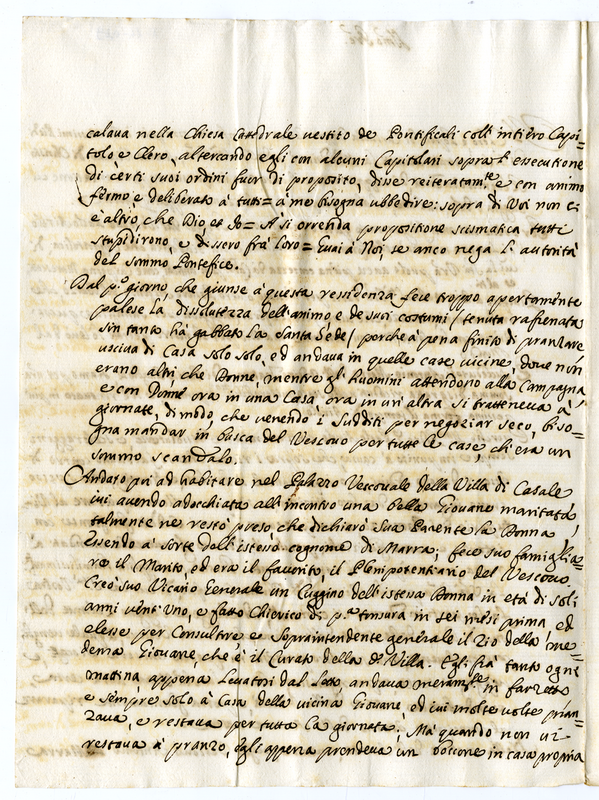 calaua nella Chiesa Cattedrale uestito de Pontificali coll'intiero Capi=
tolo è Clero, altercando egli con alcuni Capitolari sopra l'essecutione
di certi suoi ordini fuor di proposito, disse reiteratam.te e con animo
fermo e deliberato à tutti= à me bisogna ubbedire: sopra di Voi non ci
è altro che Dio, et Io= A' si orrenda propositione scismatica tutti
stupidirono, e dissero frà loro= Guai à Noi, se anco nega l'autorità
del sommo Pontefice.
Dal p.o giorno, che giunse à questa residenza fece troppo apertamente
palese la dissolutezza dell'animo e de suoi costumi (tenuta rafrenata
sin tanto hà gabbato la Santa Sede) perche à pena finito di pranzare
usciua di Casa solo solo, ed andaua in quelle case uicine, doue non
erano altri che Donne, mentre gl'Huomini attendono alla Campagna
e con Donne ora in una Casa, ora in un'altra si tratteneua à
giornate, di modo, che uenendo i Sudditi per negoziar seco, biso=
gna mandar in busca del Vescouo per tutte le case, ch'era un
sommo scandalo.
Andato poi ad habitare nel Palazzo Vescouale della Villa di Casale
iui auendo adocchiata all'incontro una bella Giouane maritata
talmente ne restò preso che dichiarò sua Parente la Donna
Essendo à sorte dell'istesso cognome di Marra; fece suo famiglia=
re il Marito, ed era il fauorito, il Plenipotentiario del Vescouo.
Creò suo Vicario Generale un Cuggino dell'istessa Donna in età di soli
anni uent'Uno, e fatto Chierico di p.a tonsura in sei mesi prima ed
elesse per Consultore e Sopraintendente generale il Zio della me=
dema Giouane, che è il Curato della d.a Villa. Egli frà tanto ogni
mattina appena leuatosi dal letto andaua in farzetto
e sempre solo à Casa della uicina Giouane ed iui molte uolte pran=
zaua, e restaua per tutta la giornata; Mà quando non ui
restaua à pranzo, egli appena prendeua un boccone in casa propria